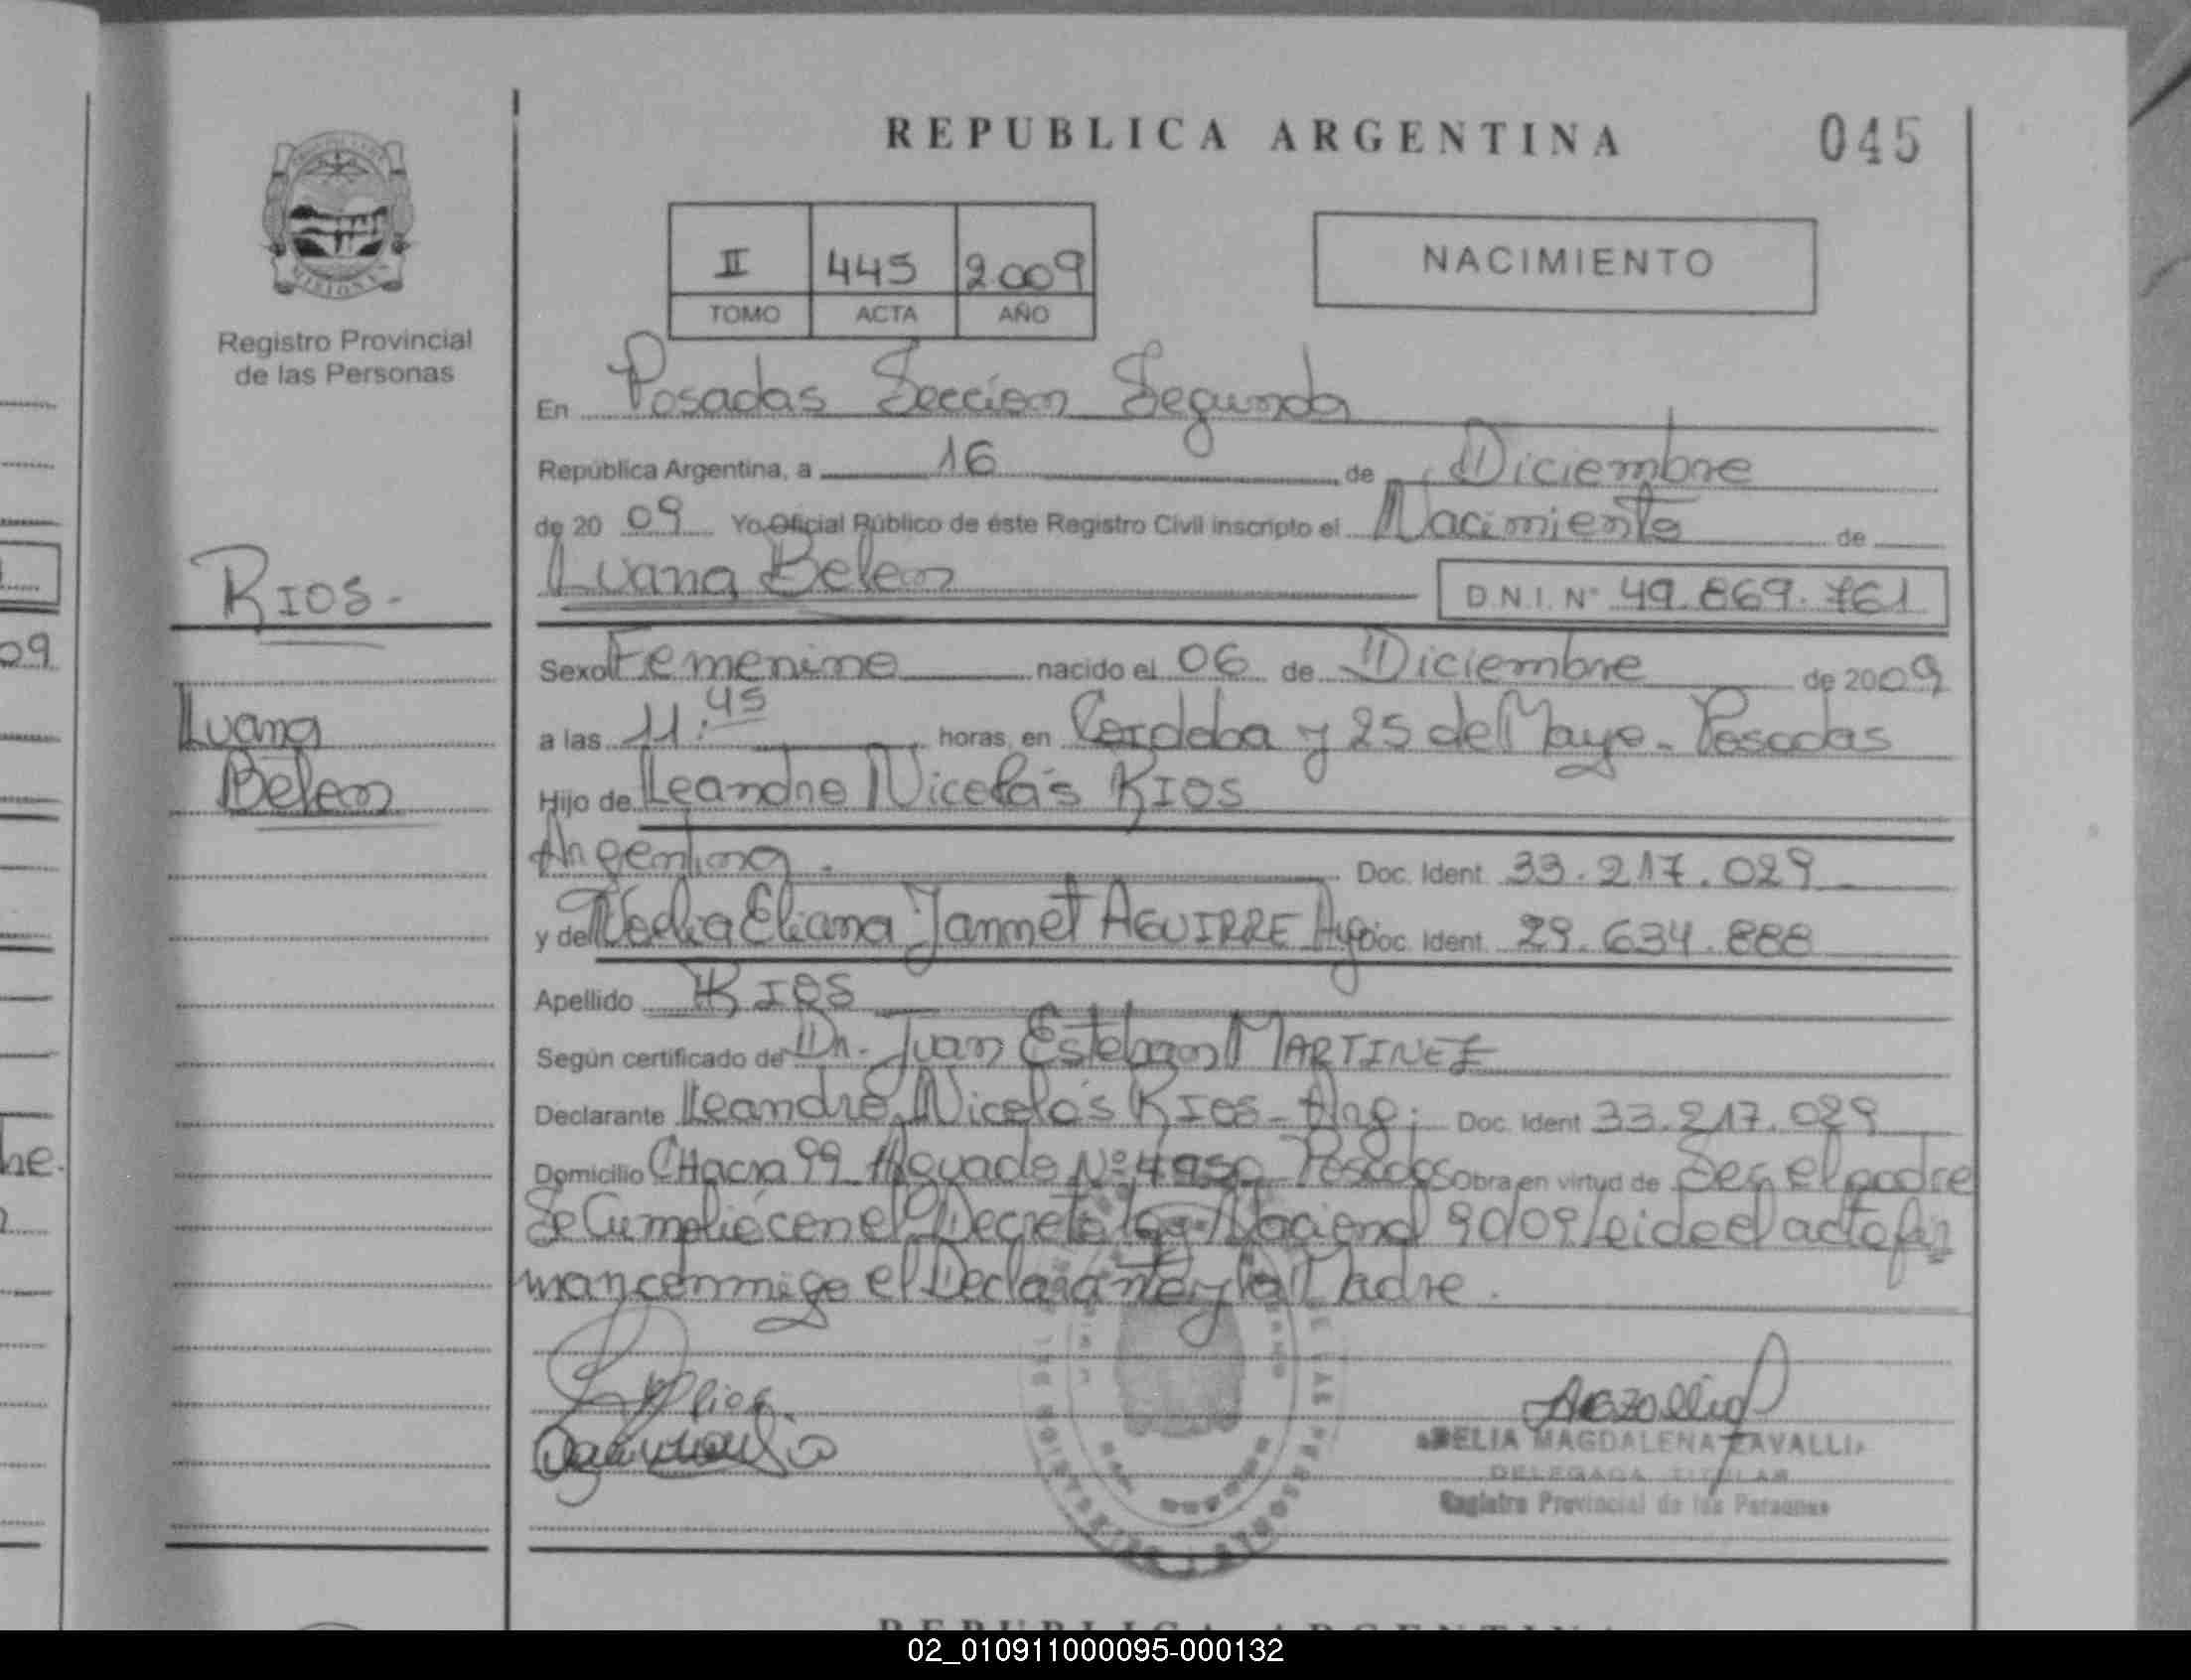 REPUBLICA ARGENTINA
045
II 445 2009
TOMO ACTA AÑO
NACIMIENTO
MISIONES
Registro Provincial
de las Personas
RIOS.-
Luana
Belen
En Posadas Seccion Segunda
República Argentina, a 16 de Diciembre
de 20 09 Yo Oficial Público de éste Registro Civil inscripto el Nacimiento de
Luana Belen D.N.I. Nº 49.869.761
Sexo Femenino nacido el 06 de Diciembre de 2009
a las 11:45 horas, en Cordoba y 25 de Mayo - Posadas
Hijo de Leandro Nicolás RIOS
Argentina. Doc. Ident. 33.217.029
y de Eliana Jannet AGUIRRE Doc. Ident. 29.634.888
Apellido RIOS
Según certificado de Dr. Juan Esteban MARTINEZ
Declarante Leandro Nicolás RIOS - Arg. Doc. Ident 33.217.029
Domicilio CHacra 99 Aguado Nº 4950 Posadas Obra en virtud de Ser el padre
Se Cumplió con el Decreto Nacional 90/09 leido el acta fir
man conmigo el Declarante y la Madre.
DELIA MAGDALENA ZAVALLI
DELEGADA TITULAR
Registro Provincial de las Personas
09
REPUBLICA ARGENTINA
02_010911000095-000132